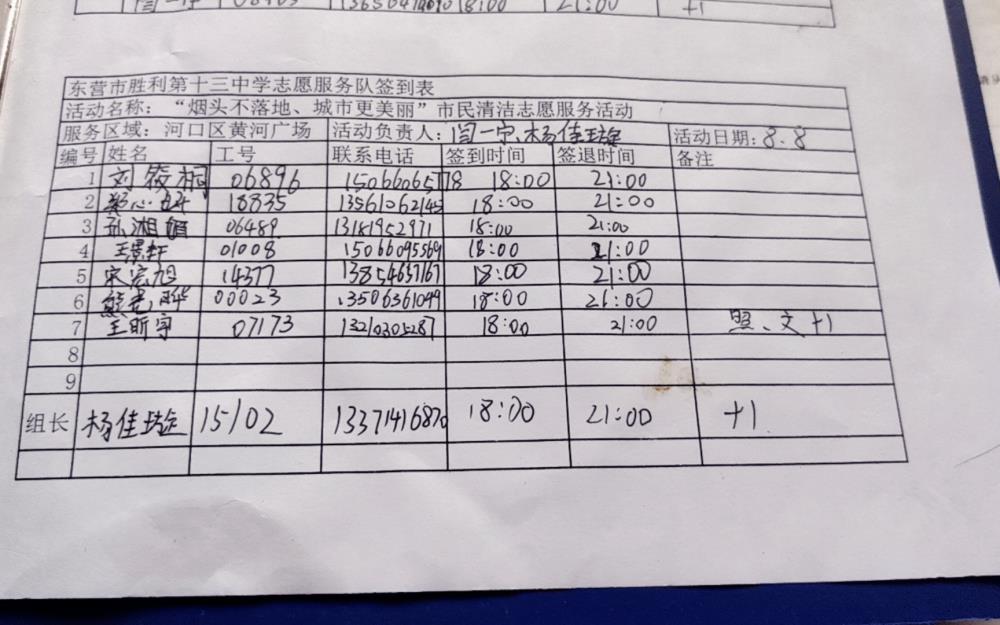 18:00 21:00 +1
东营市胜利第十三中学志愿服务队签到表
活动名称：“烟头不落地、城市更美丽”市民清洁志愿服务活动
服务区域：河口区黄河广场 活动负责人：闫一宁、杨佳璇 活动日期：8.8
编号 姓名 工号 联系电话 签到时间 签退时间 备注
1 刘筱桐 06896 15066065718 18:00 21:00
2 18835 13561062145 18:00 21:00
3 孙湘媚 06489 13181952971 18:00 21:00
4 王景轩 01008 15066095569 18:00 21:00
5 宋宏旭 14377 13854657167 18:00 21:00
6 00023 13506361099 18:00 21:00
7 王昕宇 07173 13210305287 18:00 21:00 照、文+1
8
9
组长 杨佳璇 15102 13371416870 18:00 21:00 +1